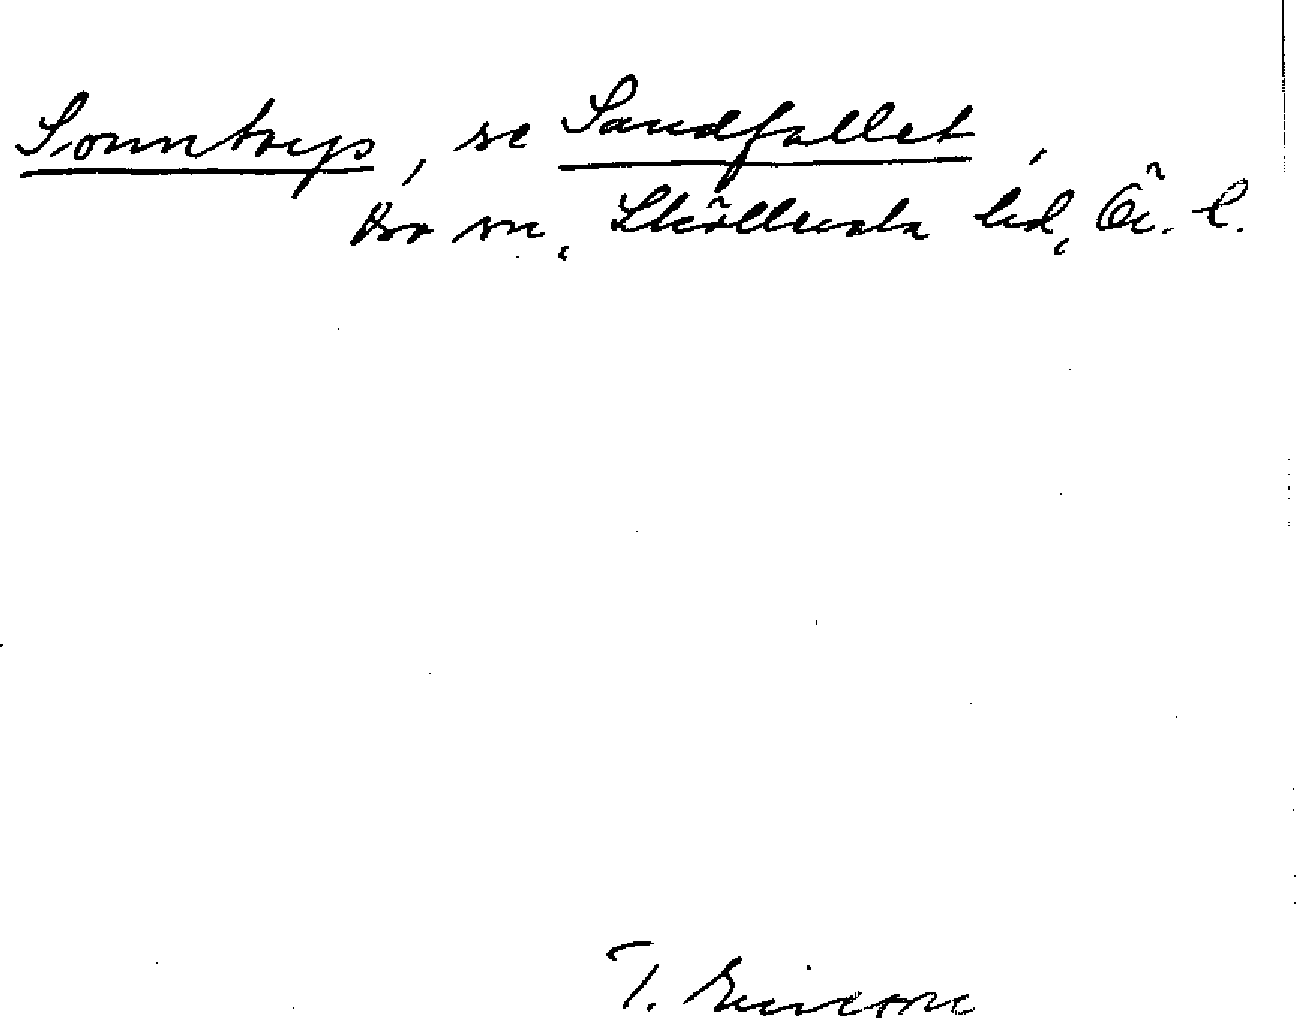 Sonntorp, se Sandfallet,
Bro sn, Sköllersta hd, Ö. l.
T. Ericson